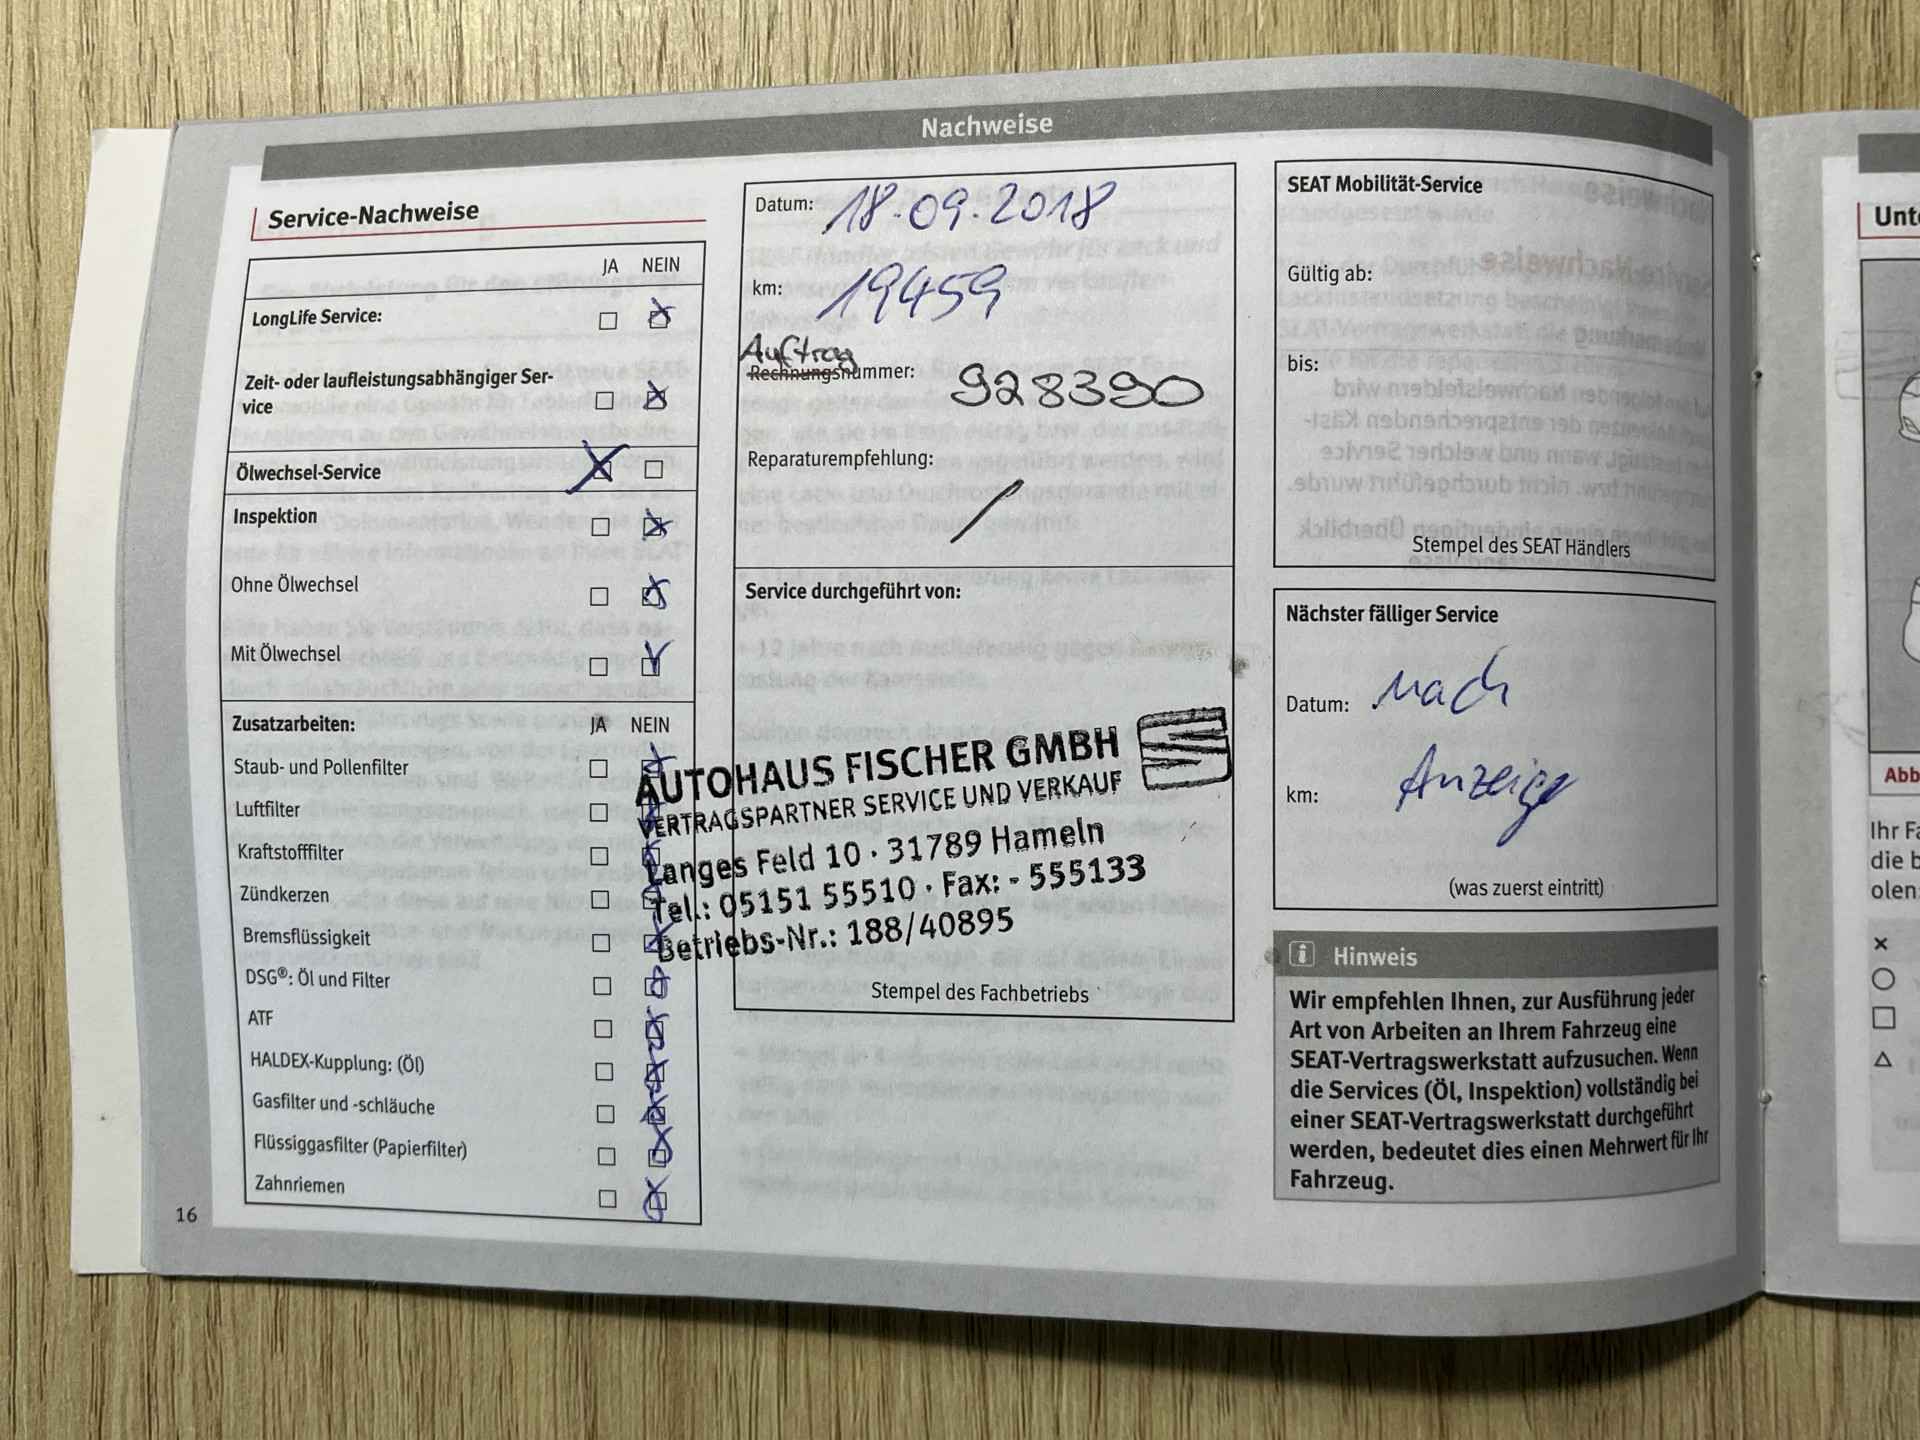 Nachweise
Service-Nachweise
JA NEIN
LongLife Service:
Zeit- oder laufleistungsabhängiger Ser-
vice
Ölwechsel-Service
Inspektion
Ohne Ölwechsel
Mit Ölwechsel
Zusatzarbeiten: JA NEIN
Staub- und Pollenfilter
Luftfilter
Kraftstofffilter
Zündkerzen
Bremsflüssigkeit
DSG®: Öl und Filter
ATF
HALDEX-Kupplung: (Öl)
Gasfilter und -schläuche
Flüssiggasfilter (Papierfilter)
Zahnriemen
16
Datum: 18.09.2018
km: 19459
Auftrag
Rechnungsnummer: 928390
Reparaturempfehlung:
/
Service durchgeführt von:
AUTOHAUS FISCHER GMBH
VERTRAGSPARTNER SERVICE UND VERKAUF
Langes Feld 10 · 31789 Hameln
Tel.: 05151 55510 · Fax: - 555133
Betriebs-Nr.: 188/40895
Stempel des Fachbetriebs
SEAT Mobilität-Service
Gültig ab:
bis:
Stempel des SEAT Händlers
Nächster fälliger Service
Datum: nach
km: Anzeige
(was zuerst eintritt)
i Hinweis
Wir empfehlen Ihnen, zur Ausführung jeder
Art von Arbeiten an Ihrem Fahrzeug eine
SEAT-Vertragswerkstatt aufzusuchen. Wenn
die Services (Öl, Inspektion) vollständig bei
einer SEAT-Vertragswerkstatt durchgeführt
werden, bedeutet dies einen Mehrwert für Ihr
Fahrzeug.
Unte
Abb
Ihr Fa
die b
olen: